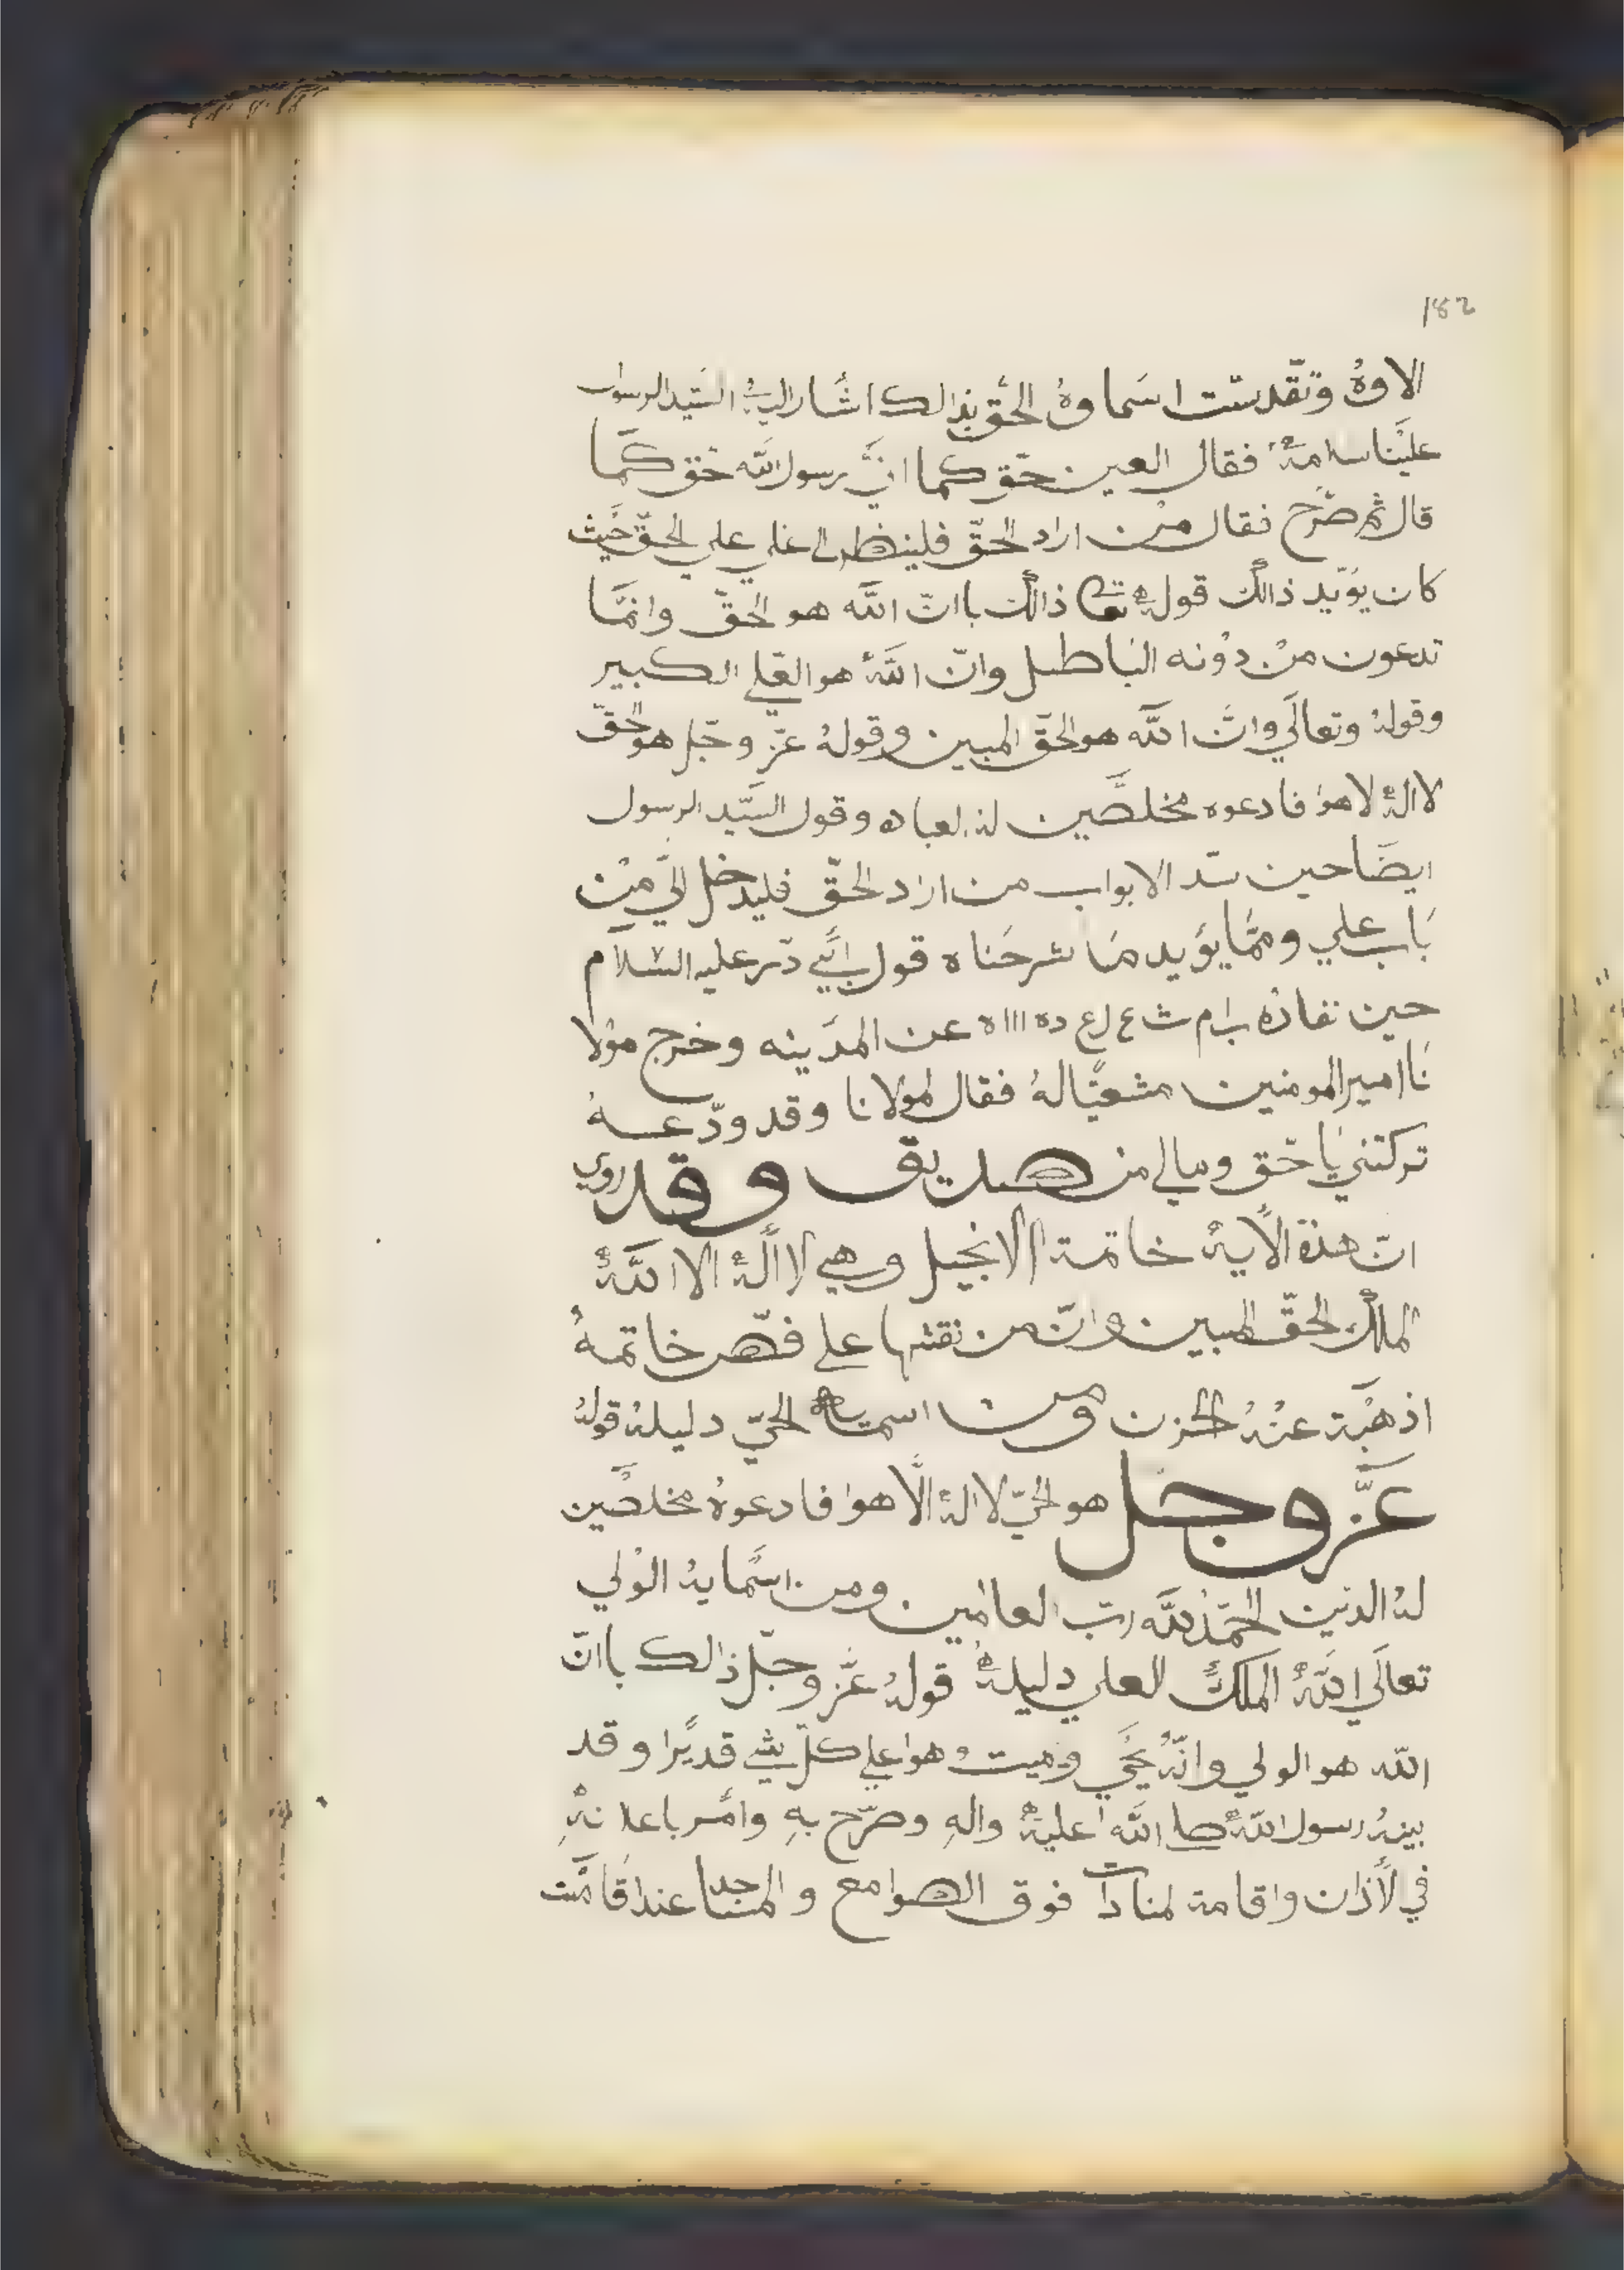 182
الاوهُ وتقدست اسماوهُ الحق بذالك اشار اليهُ السيد الرسول
علينا سلامهُ فقال العين حق كما انَّ رسول الله حق كما
قال ثم صرّح فقال من اراد الحقّ فلينظر الى علي علي الحقّ حيث
كان يؤيد ذالك قولهُ تعا ذالك باانّ الله هو الحقّ وانمّا
تدعون من دونه الباطل وانّ اللهُ هو العلي الكبير
وقولهُ وتعالى وانّ الله هو الحقّ المبين وقولهُ عزّ وجّل هو الحقّ
لا الهُ لا هو فادعوه مخلصين لهُ لعباده وقول السيّد الرسول
ايضا حين سد الابواب من اراد الحقّ فليدخل الي من
باب علي وممّا يؤيد ما شرحناه قول ابي ذر عليه السلام
حين نفاهُ ب ا م ث ع ل ع د ه ااا ه عن المدينه وخرج مولا
نا امير المومنين مشعيّا لهُ فقال لمولانا وقد ودّعهُ
تركتني يا حق ومالي من صديق وقد روي
انّ هذه الايهُ خاتمة الانجيل وهي لا الهُ الا اللهُ
الملك الحقّ المبين وانّ من نقشها علي فصّ خاتمهُ
اذهبة عنهُ الحزن ومن اسمايهُ الحيّ دليلهُ قولهُ
عزَّ وجل هو الحيّ لا الهُ الّا هوا فادعوهُ مخلصين
لهُ الدين الحمدُ لله ربّ العالمين ومن اسمايهُ الولي
تعالى اللهُ الملك العلي دليلهُ قولهُ عزّ وجّل ذالك باانّ
الله هو الولي وانّهُ يحي وميت وُهوا علي كلّ شي قديرًا وقد
بينهُ رسول اللهُ صلا الله اعليهُ والهِ وصرّح بهِ وامر باعلانهِ
في لأذان واقامة لمنادات فوق الصوامع والمساجد عند اقامت